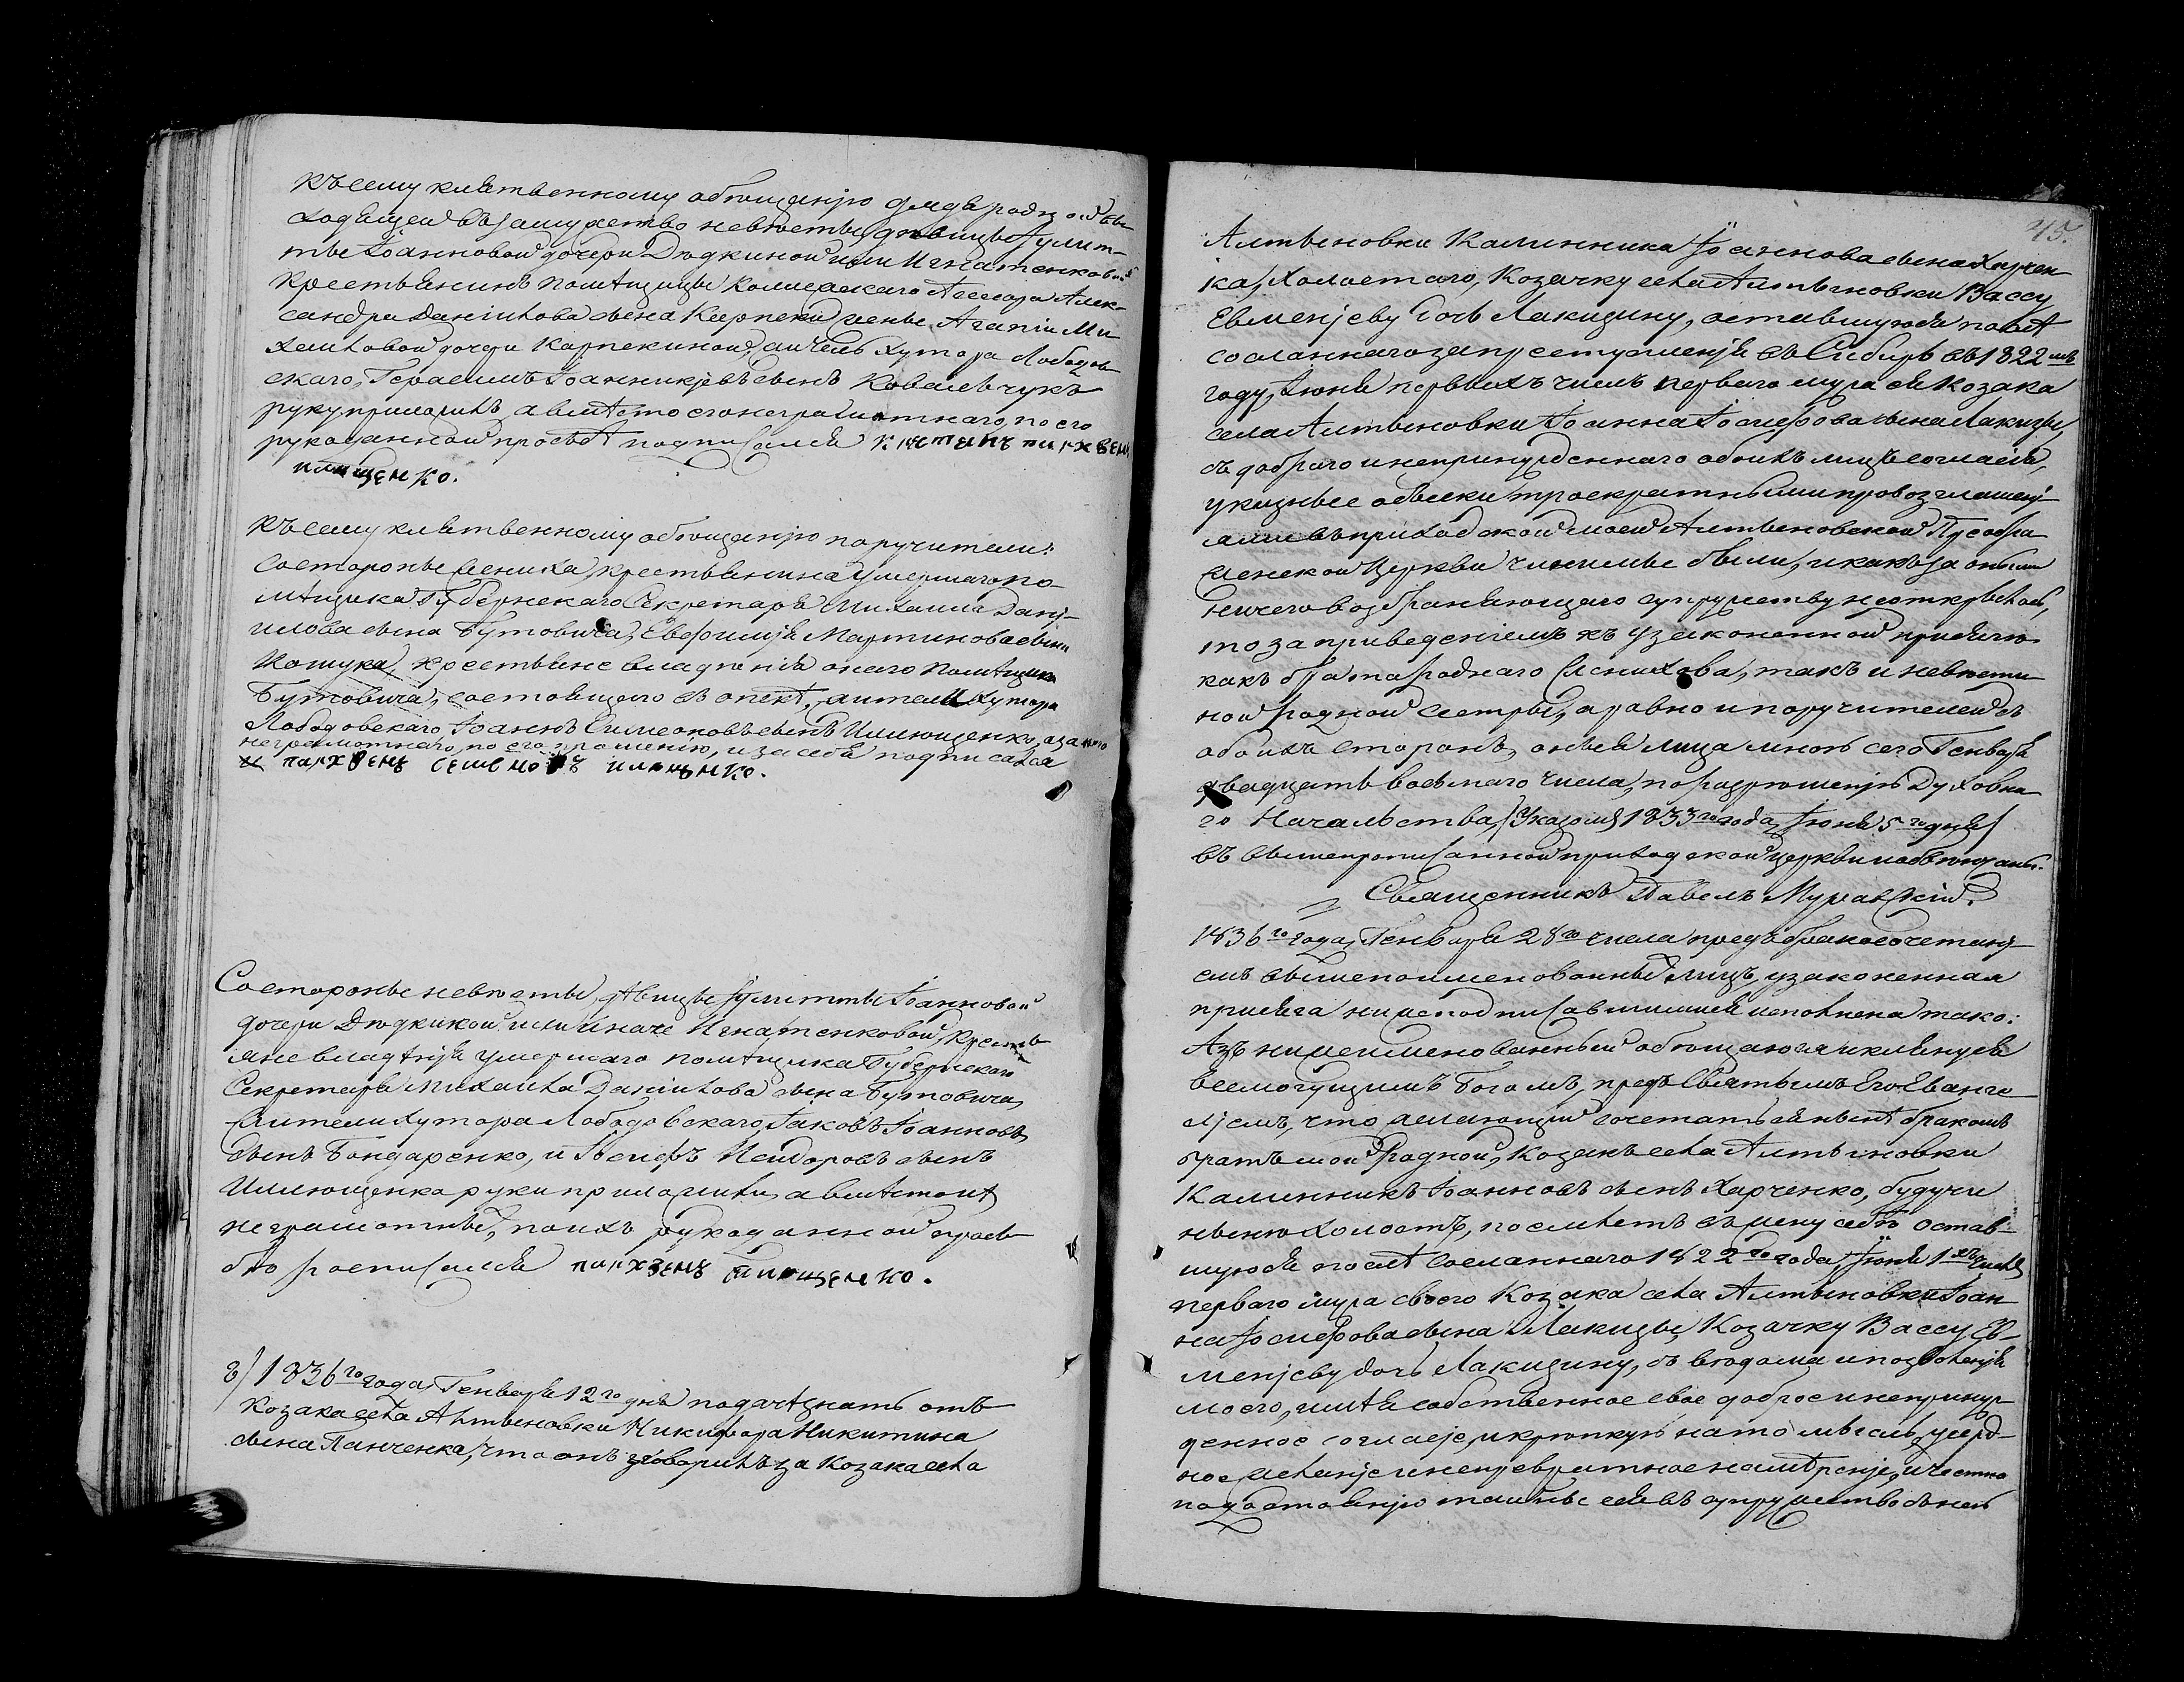 Къ сему клятвенному обѣщанію дядя родной вы-
ходящей въ замужество невѣсты дѣвицы Іулит-
ты Іоанновой дочери Дюдкиной или Игнатенковой
Крестьянинъ помѣщицы Коллежскаго Ассесора Алек-
сандра Даніилова сына жены Агапіи Ми
хайловой дочери житель хутора Лободов-
скаго, Герасимъ Іоанникіевъ сынъ Ковалевчукъ
руку приложилъ, а вмѣсто его неграмотнаго, по его
рукоданной прозбѣ подписался
Къ сему клятвенному обѣщанію поручители:
Со стороны жениха, крестьянина умершаго по-
мѣщика Губернскаго Секретаря Михаила Дані-
илова сына Бутовича, Евфимія Мартинова сына
крестьяне владѣнія онаго Помѣщика
Бутовича, состоящаго въ опекѣ, жители хутора
Лободовскаго, Іоаннъ Симеоновъ сынъ Илющенко, а за него
неграмотнаго, по его прошенію, и за себя подписался
и пархвенъ илющенко.
Со стороны невѣсты, дѣвицы Іулитты Іоанновой
дочери Дюдкиной или иначе Игнатенковой, Кресть-
яне владѣнія умершаго помѣщика Губернскаго
Секретаря Михаила Даніилова сына Бутовича,
Жители хутора Лободовскаго, Іаковъ Іоанновъ
сынъ Бондаренко, и Іосифъ Исидоровъ сынъ
Илющенко руки приложили, а вмѣсто ихъ
неграмотныхъ, по ихъ рукоданной прозь-
бѣ росписался пархвенъ илющенко.
8) 1836го года, Генваря 12го дня подачѣ знать отъ
Козака села Алтыновки Никифора Никитина
сына Панченка, что онъ зговорилъ за Козака села
45.
Алтыновки Каллинника Іоаннова сына Харчен-
ка, Холостаго, Козачку села Алтыновки Вассу
Евменіеву дочь Лакизину, оставшуюся послѣ
сосланнаго за преступленія въ Сибирь въ 1822мъ
году, Іюня первыхъ чиселъ перваго мужа ея Козака
села Алтыновки Іоанна Іосифова сына Лакизы,
съ добраго и непринужденнаго обоихъ лицъ согласія,
указные обыски троекратными провозглашені-
ями въ приходской моей Алтыновской Преобра
женской Церкви чинимы были, и какъ за оными
ничего возбраняющаго супружеству не открылось,
то за приведеніемъ къ узаконенной присягѣ
какъ брата роднаго Женихова, такъ и невѣсти-
ной родной сестры, а равно и поручителей съ
обоихъ сторонъ, оныя лица мною сего Генваря
двадцать восьмаго числа, по разрѣшенію Духовна
го Начальства, /Указомъ 1833го года, Іюня 5го дня/
въ вышепрописанной приходской церкви повѣнчаны.
Священникъ Павелъ Муравскій.
1836го года, Генваря 28го числа предъ бракосочетані-
емъ вышепоименованныхъ лицъ, узаконенная
присяга нижеподписавшимися исполнена тако:
Азъ нижеименованный обѣщаюся и клянуся
всемогущимъ Богомъ, предъ Святымъ Его Еванге-
ліемъ, что желающій сочетаться нынѣ бракомъ
братъ мой родной, Козакъ села Алтыновки
Каллинникъ Іоанновъ сынъ Харченко, будучи
нынѣ холостъ, поемлетъ въ жену себѣ остав-
шуюся послѣ сосланнаго 1822го года, Іюня 1хъ числъ
перваго мужа своего Козака села Алтыновки Іоан-
на Іосифова сына Лакизы, Козачку Вассу Ев-
меніеву дочь Лакизину, съ вѣдома и позволенія
моего, имѣя собственное свое доброе и непринуж-
денное согласіе, и крѣпкую на то мысль, усерд-
ное желаніе и непревратное намѣреніе, и честно